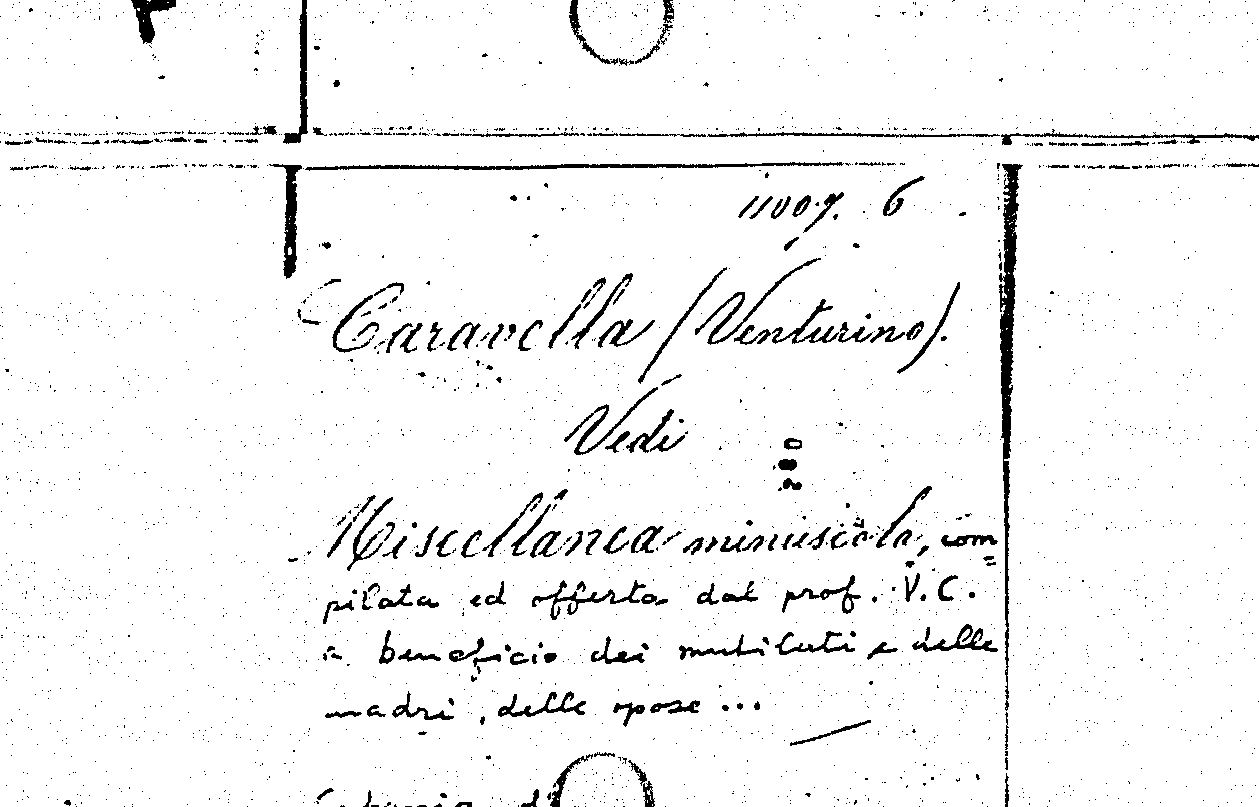 11007. 6
Caravella (Venturino).
Vedi
280
Miscellanea minuscola, com=
pilata ed offerta dal prof. V. C.
a beneficio dei mutilati e delle
madri, delle spose ...